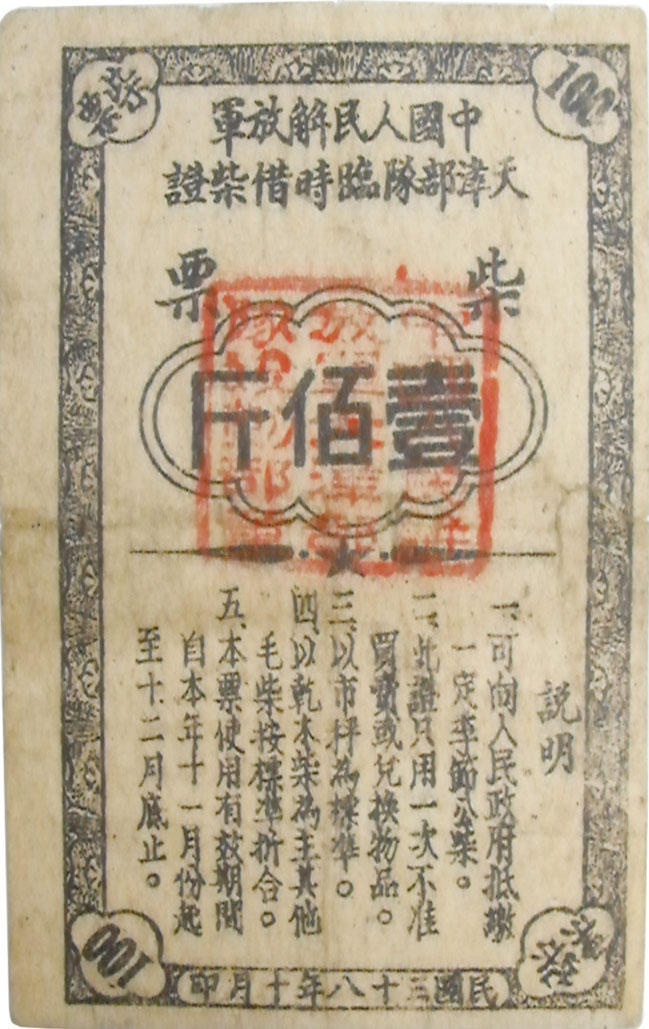 100
柴票
中國人民解放軍
天津部隊臨時借柴證
柴票
壹佰斤
説明
一、可向人民政府抵繳
一定季節公柴。
二、此證只用一次不准
買賣或兌換物品。
三、以市秤為標準。
四、以乾木柴為主其他
毛柴按標準折合。
五、本票使用有效期間
自本年十一月份起
至十二月底止。
柴票
100
民國三十八年十月印